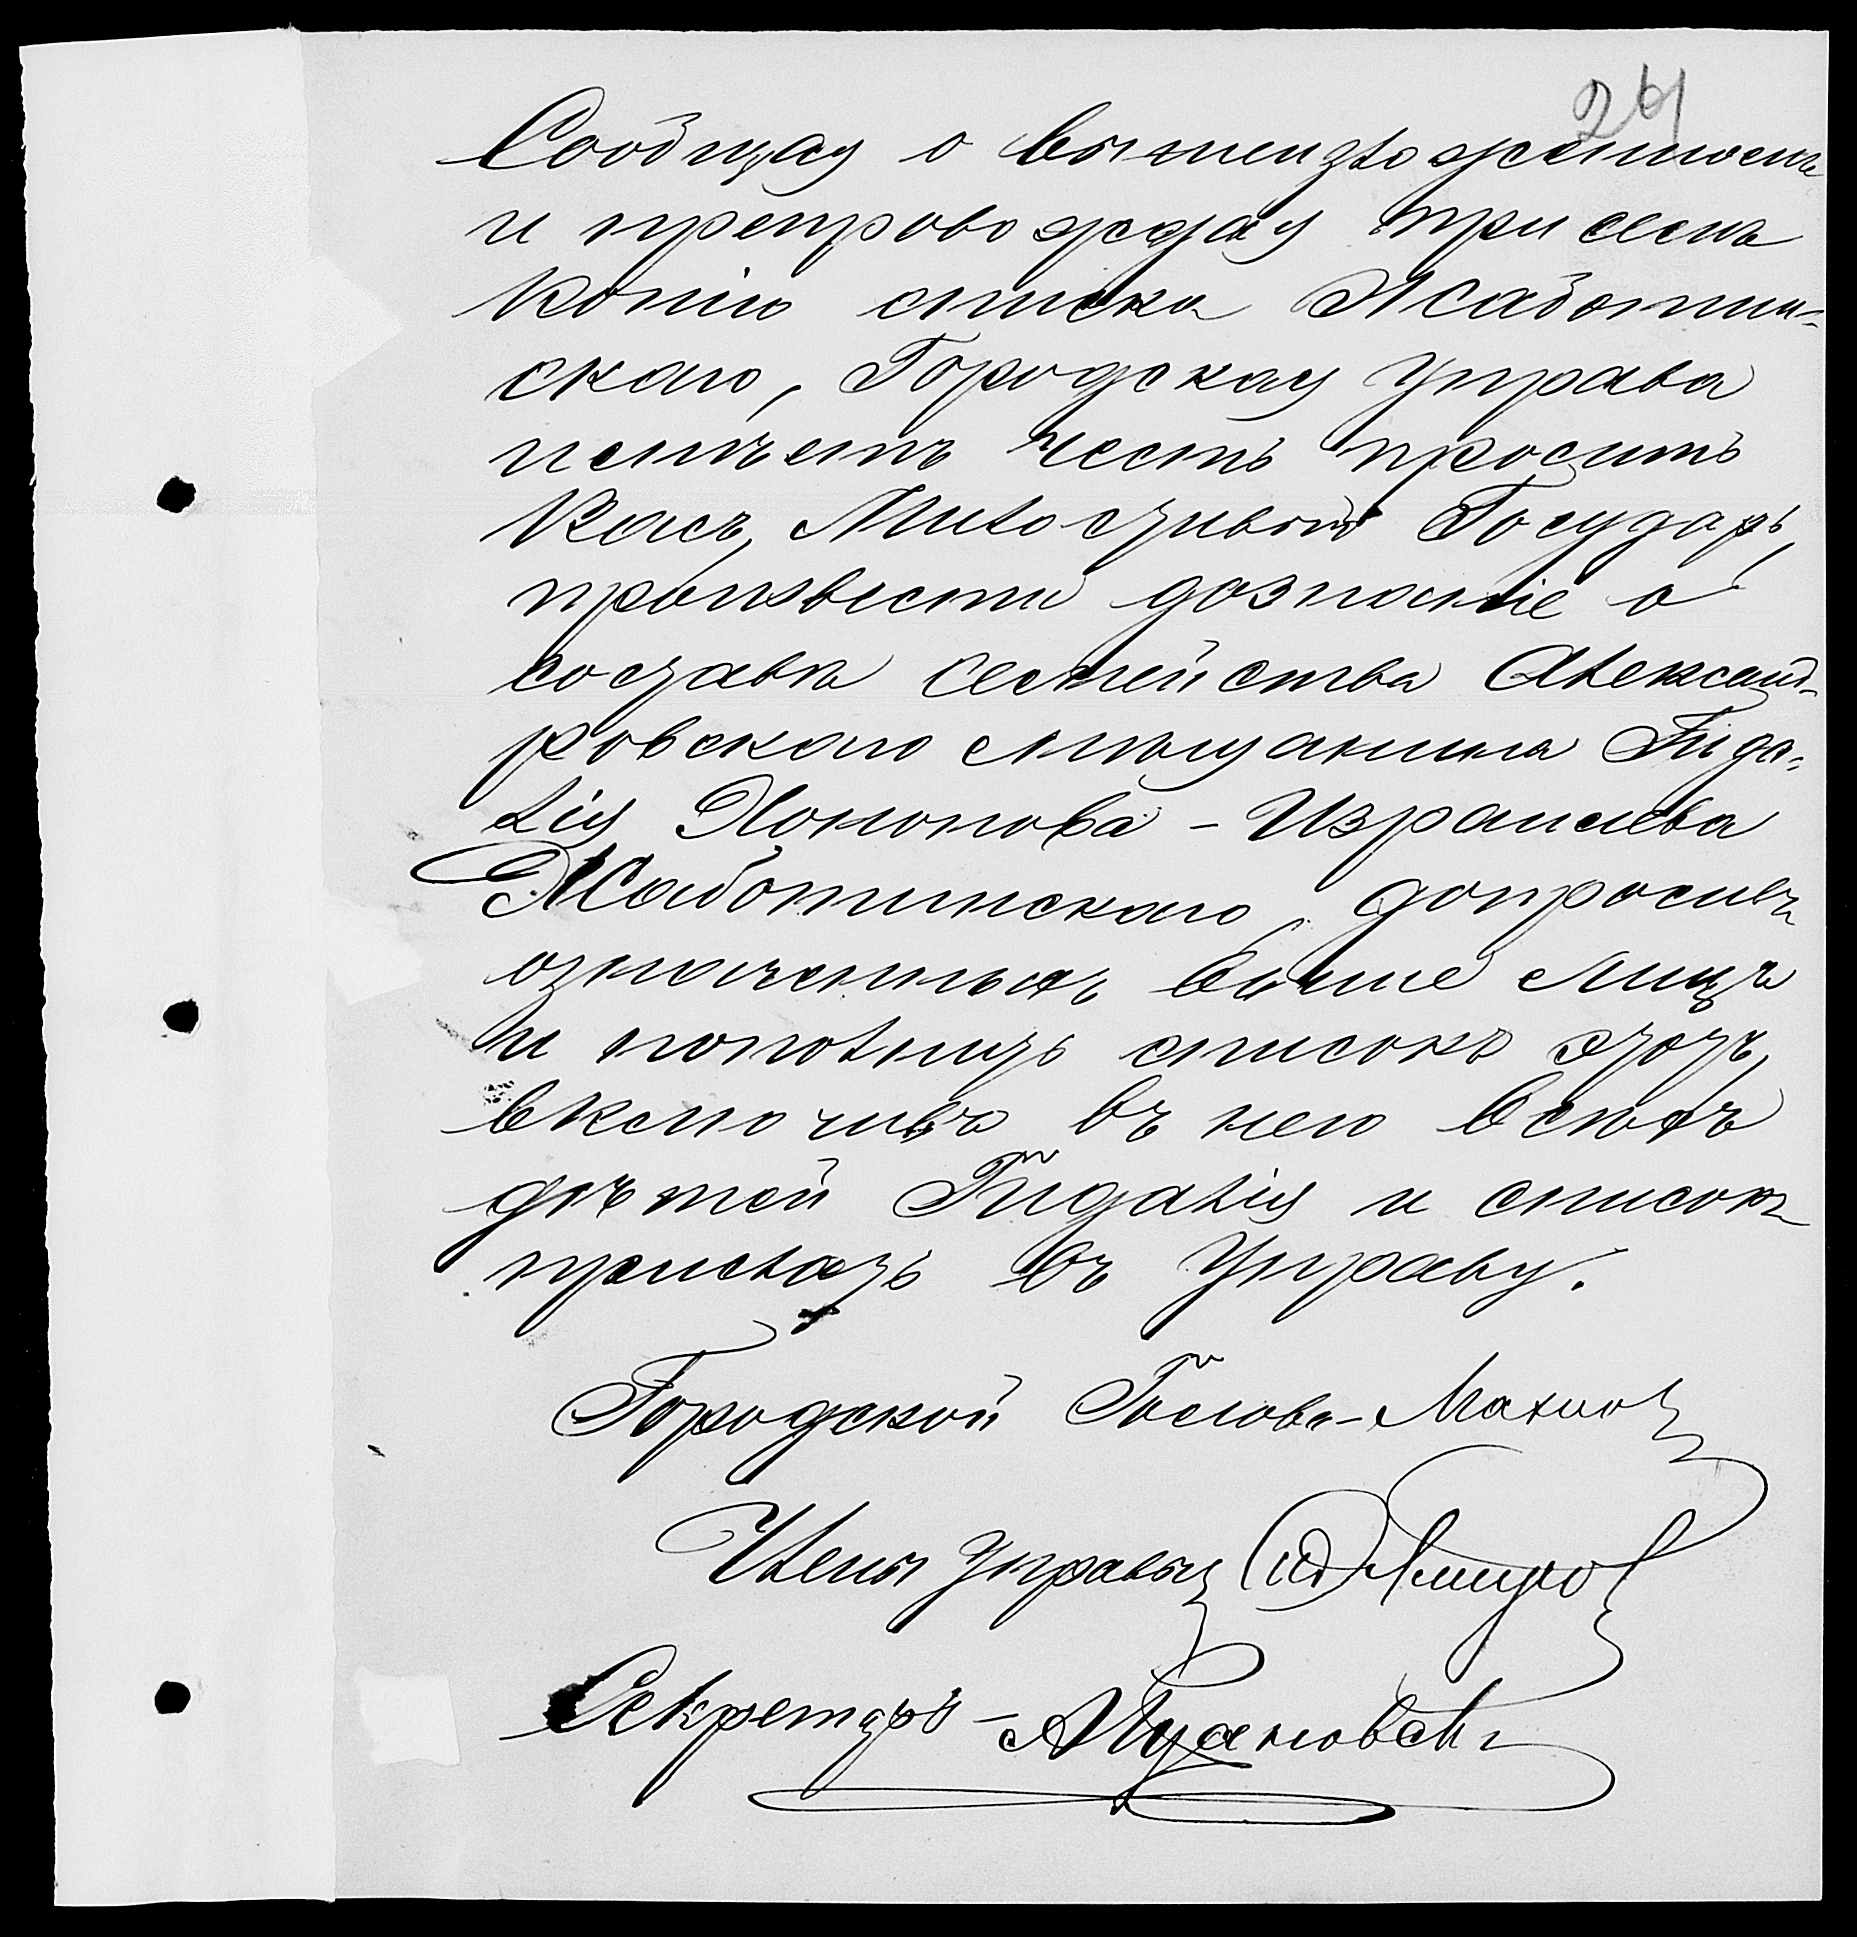 24
Сообщая о вышеизложенномъ
и препровождая при семъ
копію списка Жаботин-
скаго, Городская Управа
имѣетъ честь просить
Васъ, Милостивый Государь,
произвести дознаніе о
составѣ семейства Александ-
ровскаго мѣщанина Гида-
лія Хононова-Израилева
Жаботинскаго, допросивъ
означенныхъ выше лицъ
и пополнить списокъ этотъ,
включивъ въ него всѣхъ
дѣтей Гидалія и списокъ
прислать въ Управу.
Городской Голова - Махно
Членъ Управы
Секретарь -